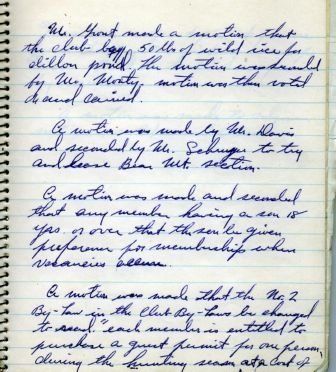 Mr. Yount made a motion that
the club buy 50 lbs of wild rice for
dillon pond. The motion was seconded
by Mr. Mosty, motion was then voted
de and carried.
A motion was made by Mr. Davis
and seconded by Mr. to try
and lease Bear Mt. section.
A motion was made and seconded
that any member having a son 18
yrs. or over that the son be given
preference for membership when
vacancies occur.
A motion was made that the No. 2
By-Law in the Club By-Laws be changed
to read. "each member is entitled to
purchase a guest permit for one person,
during the hunting season, at a cost of